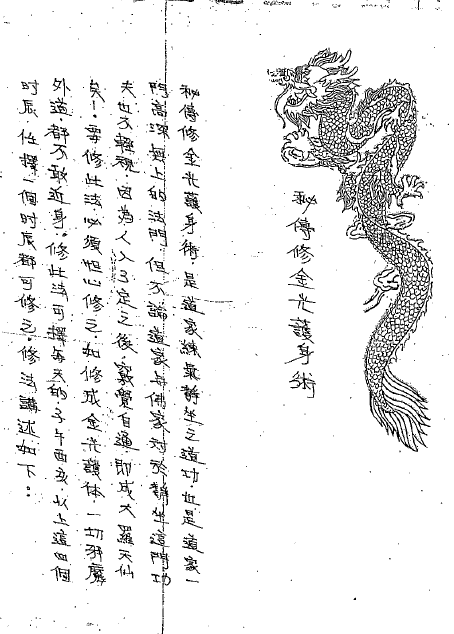 秘傳修金光護身術
秘傳修金光護身術是道家練氣靜坐之道功。也是道家一
門高深無上的法門。但不論道家与佛家对於靜坐這門功
夫也不輕視。因為人入了定之後。竅覺自通。即成大羅天仙
矣！要修此法必須恒心修之。如修成金光護体。一切邪魔
外道。都不敢近身。修此法可擇每天的子午酉亥。以上這四個
时辰。任擇一個时辰都可修之。修法講述如下：